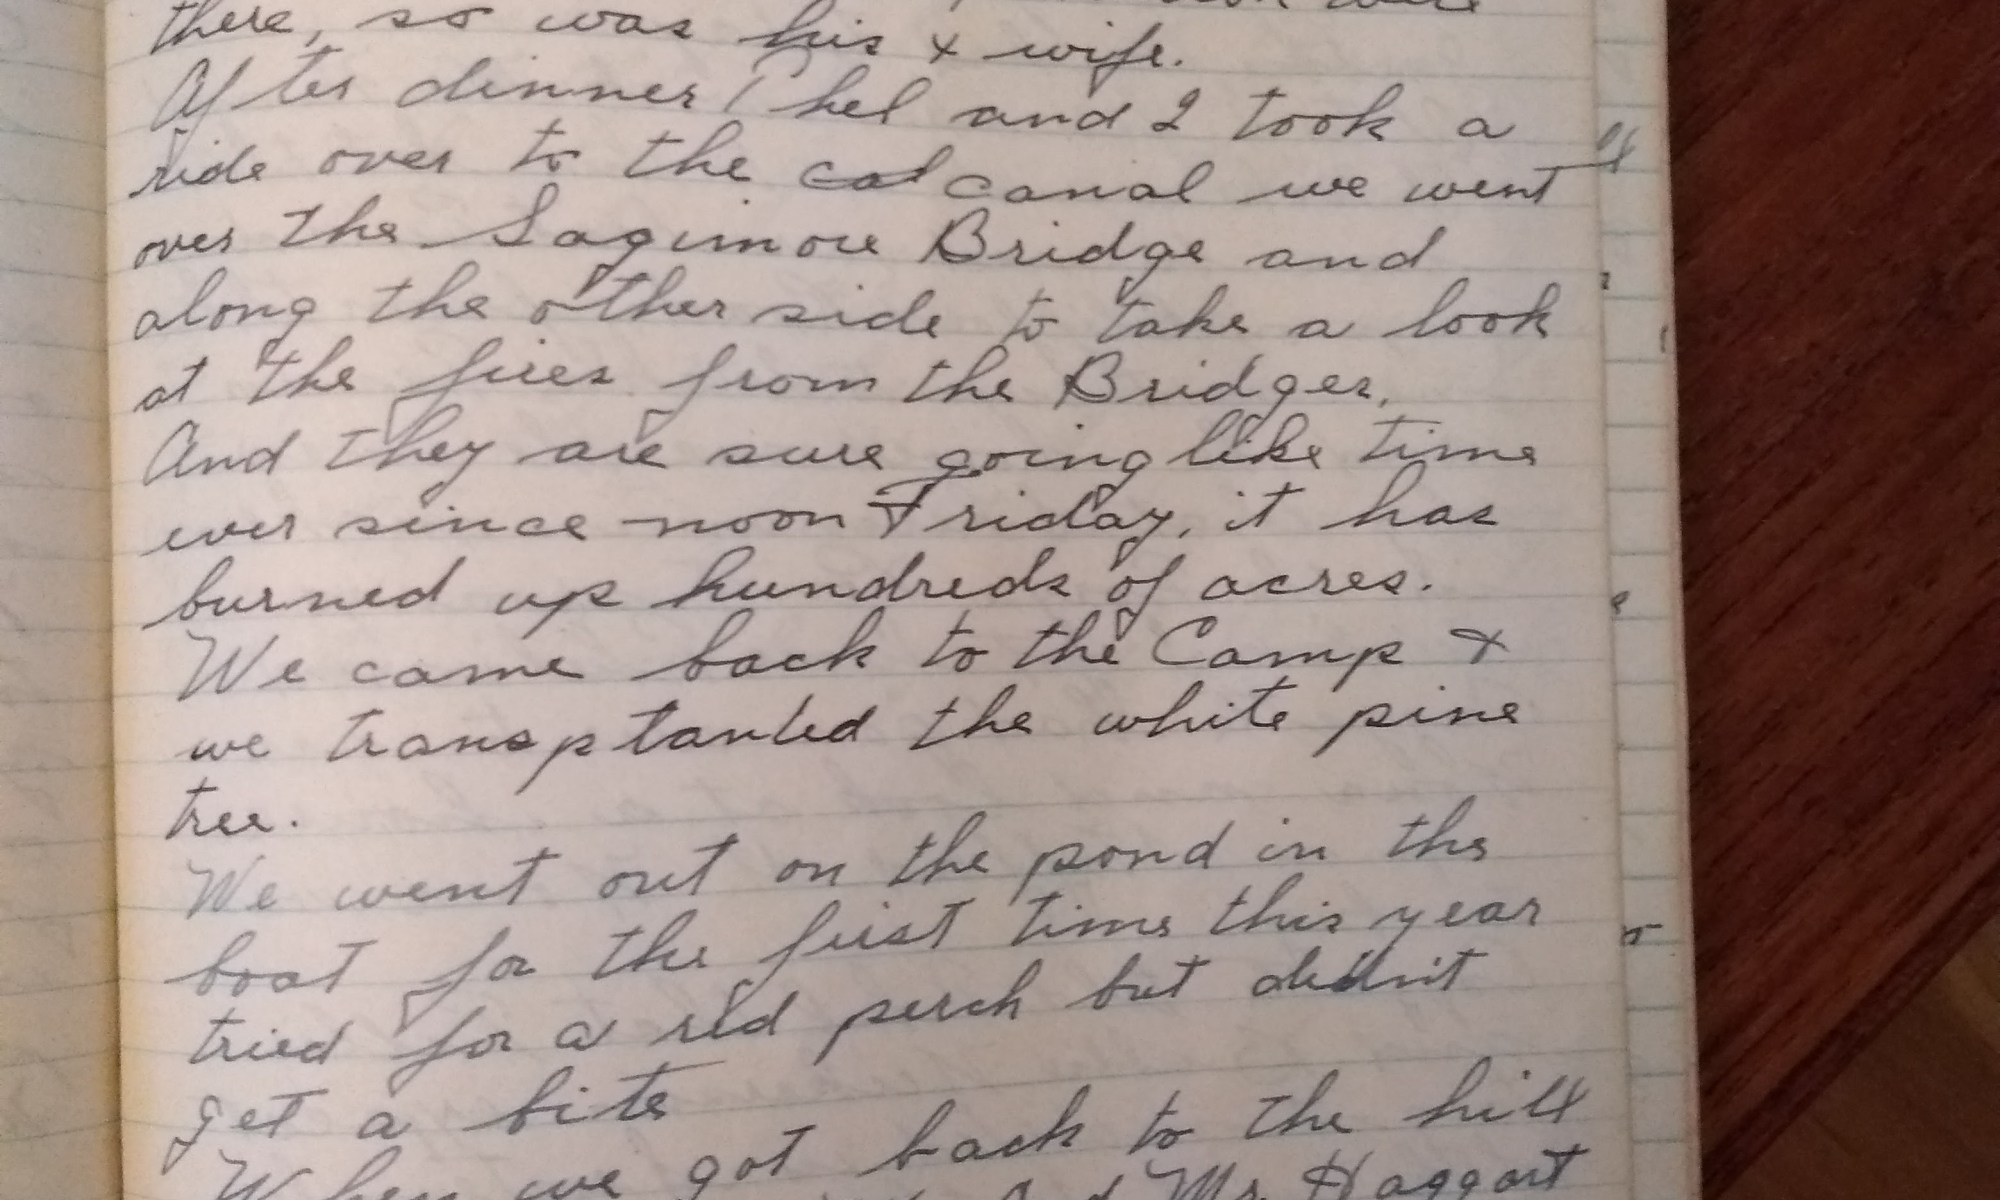 were
there, so was his + wife.
After dinner Phel and I took a
ride over to the cal canal we went
over the Sagimore Bridge and
along the other side to take a look
at the fires from the Bridges,
And they are sure going like time
ever since noon Friday, it has
burned up hundreds of acres.
We came back to the Camp +
we transptanted the white pine
tree.
We went out on the pond in the
boat for the first time this year
tried for a red perch but didn't
get a bite
When we got back to the hill
and Mr. Haggart